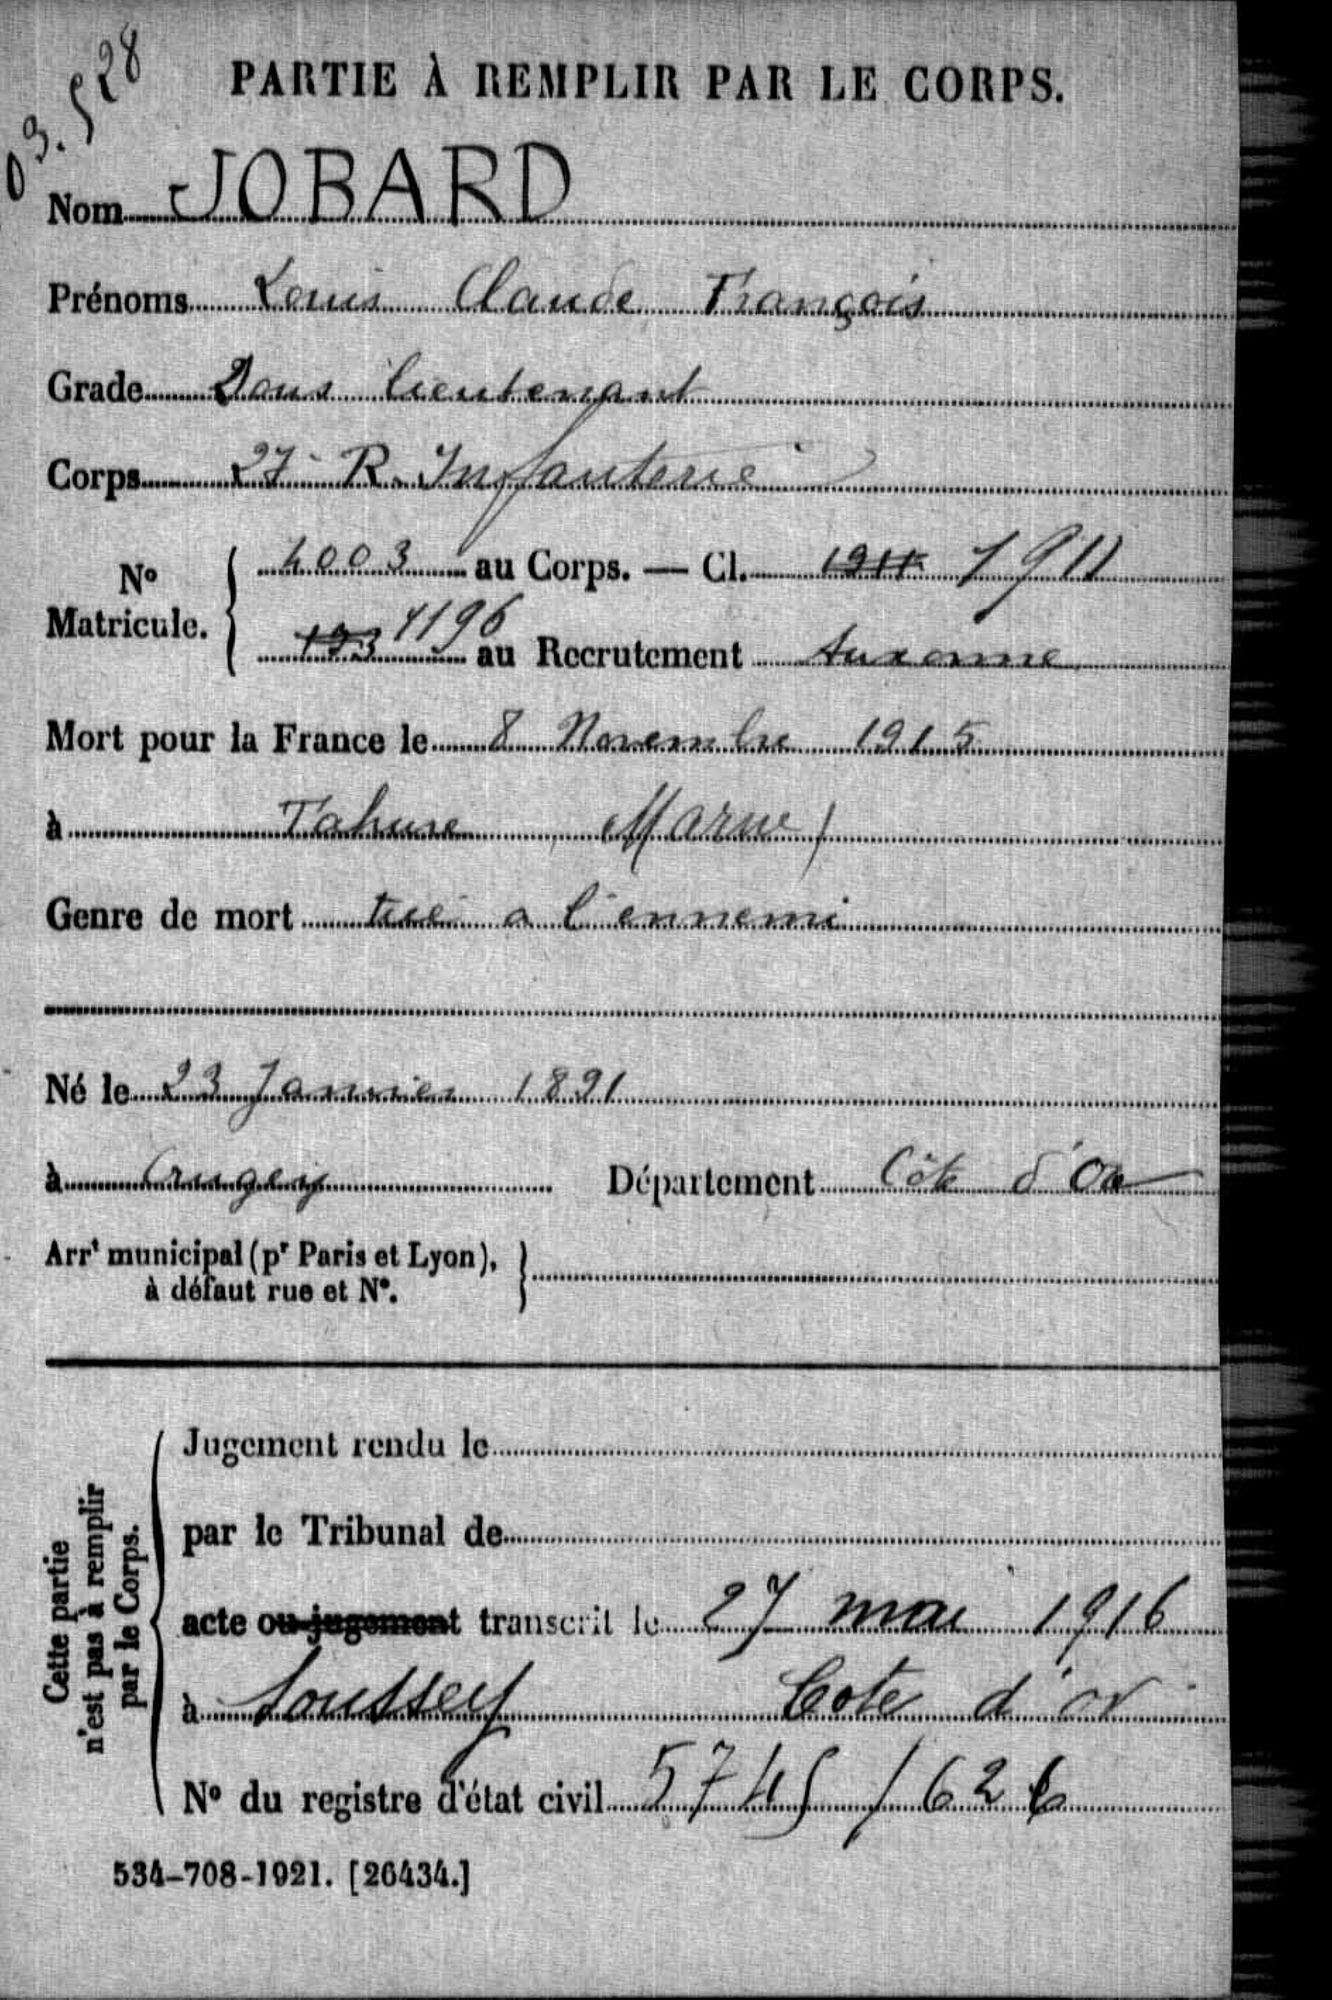 03.528
PARTIE À REMPLIR PAR LE CORPS.
Nom JOBARD
Prénoms Louis Claude François
Grade Sous lieutenant
Corps 27 R. Infanterie
Nº Matricule. { 4003 au Corps. — Cl. 1911 1911
193 1196 au Recrutement Auxonne
Mort pour la France le 8 Novembre 1915
à Tahure (Marne)
Genre de mort tué a l'ennemi
Né le 23 Janvier 1891
à Crugey Département Côte d'Or
Arrt municipal (pr Paris et Lyon), }
à défaut rue et Nº.
Cette partie
n'est pas à remplir
par le Corps.
Jugement rendu le
par le Tribunal de
acte ou jugement transcrit le 27 mai 1916
à Soussey Cote d'or
Nº du registre d'état civil 5745/626
534-708-1921. [26434.]